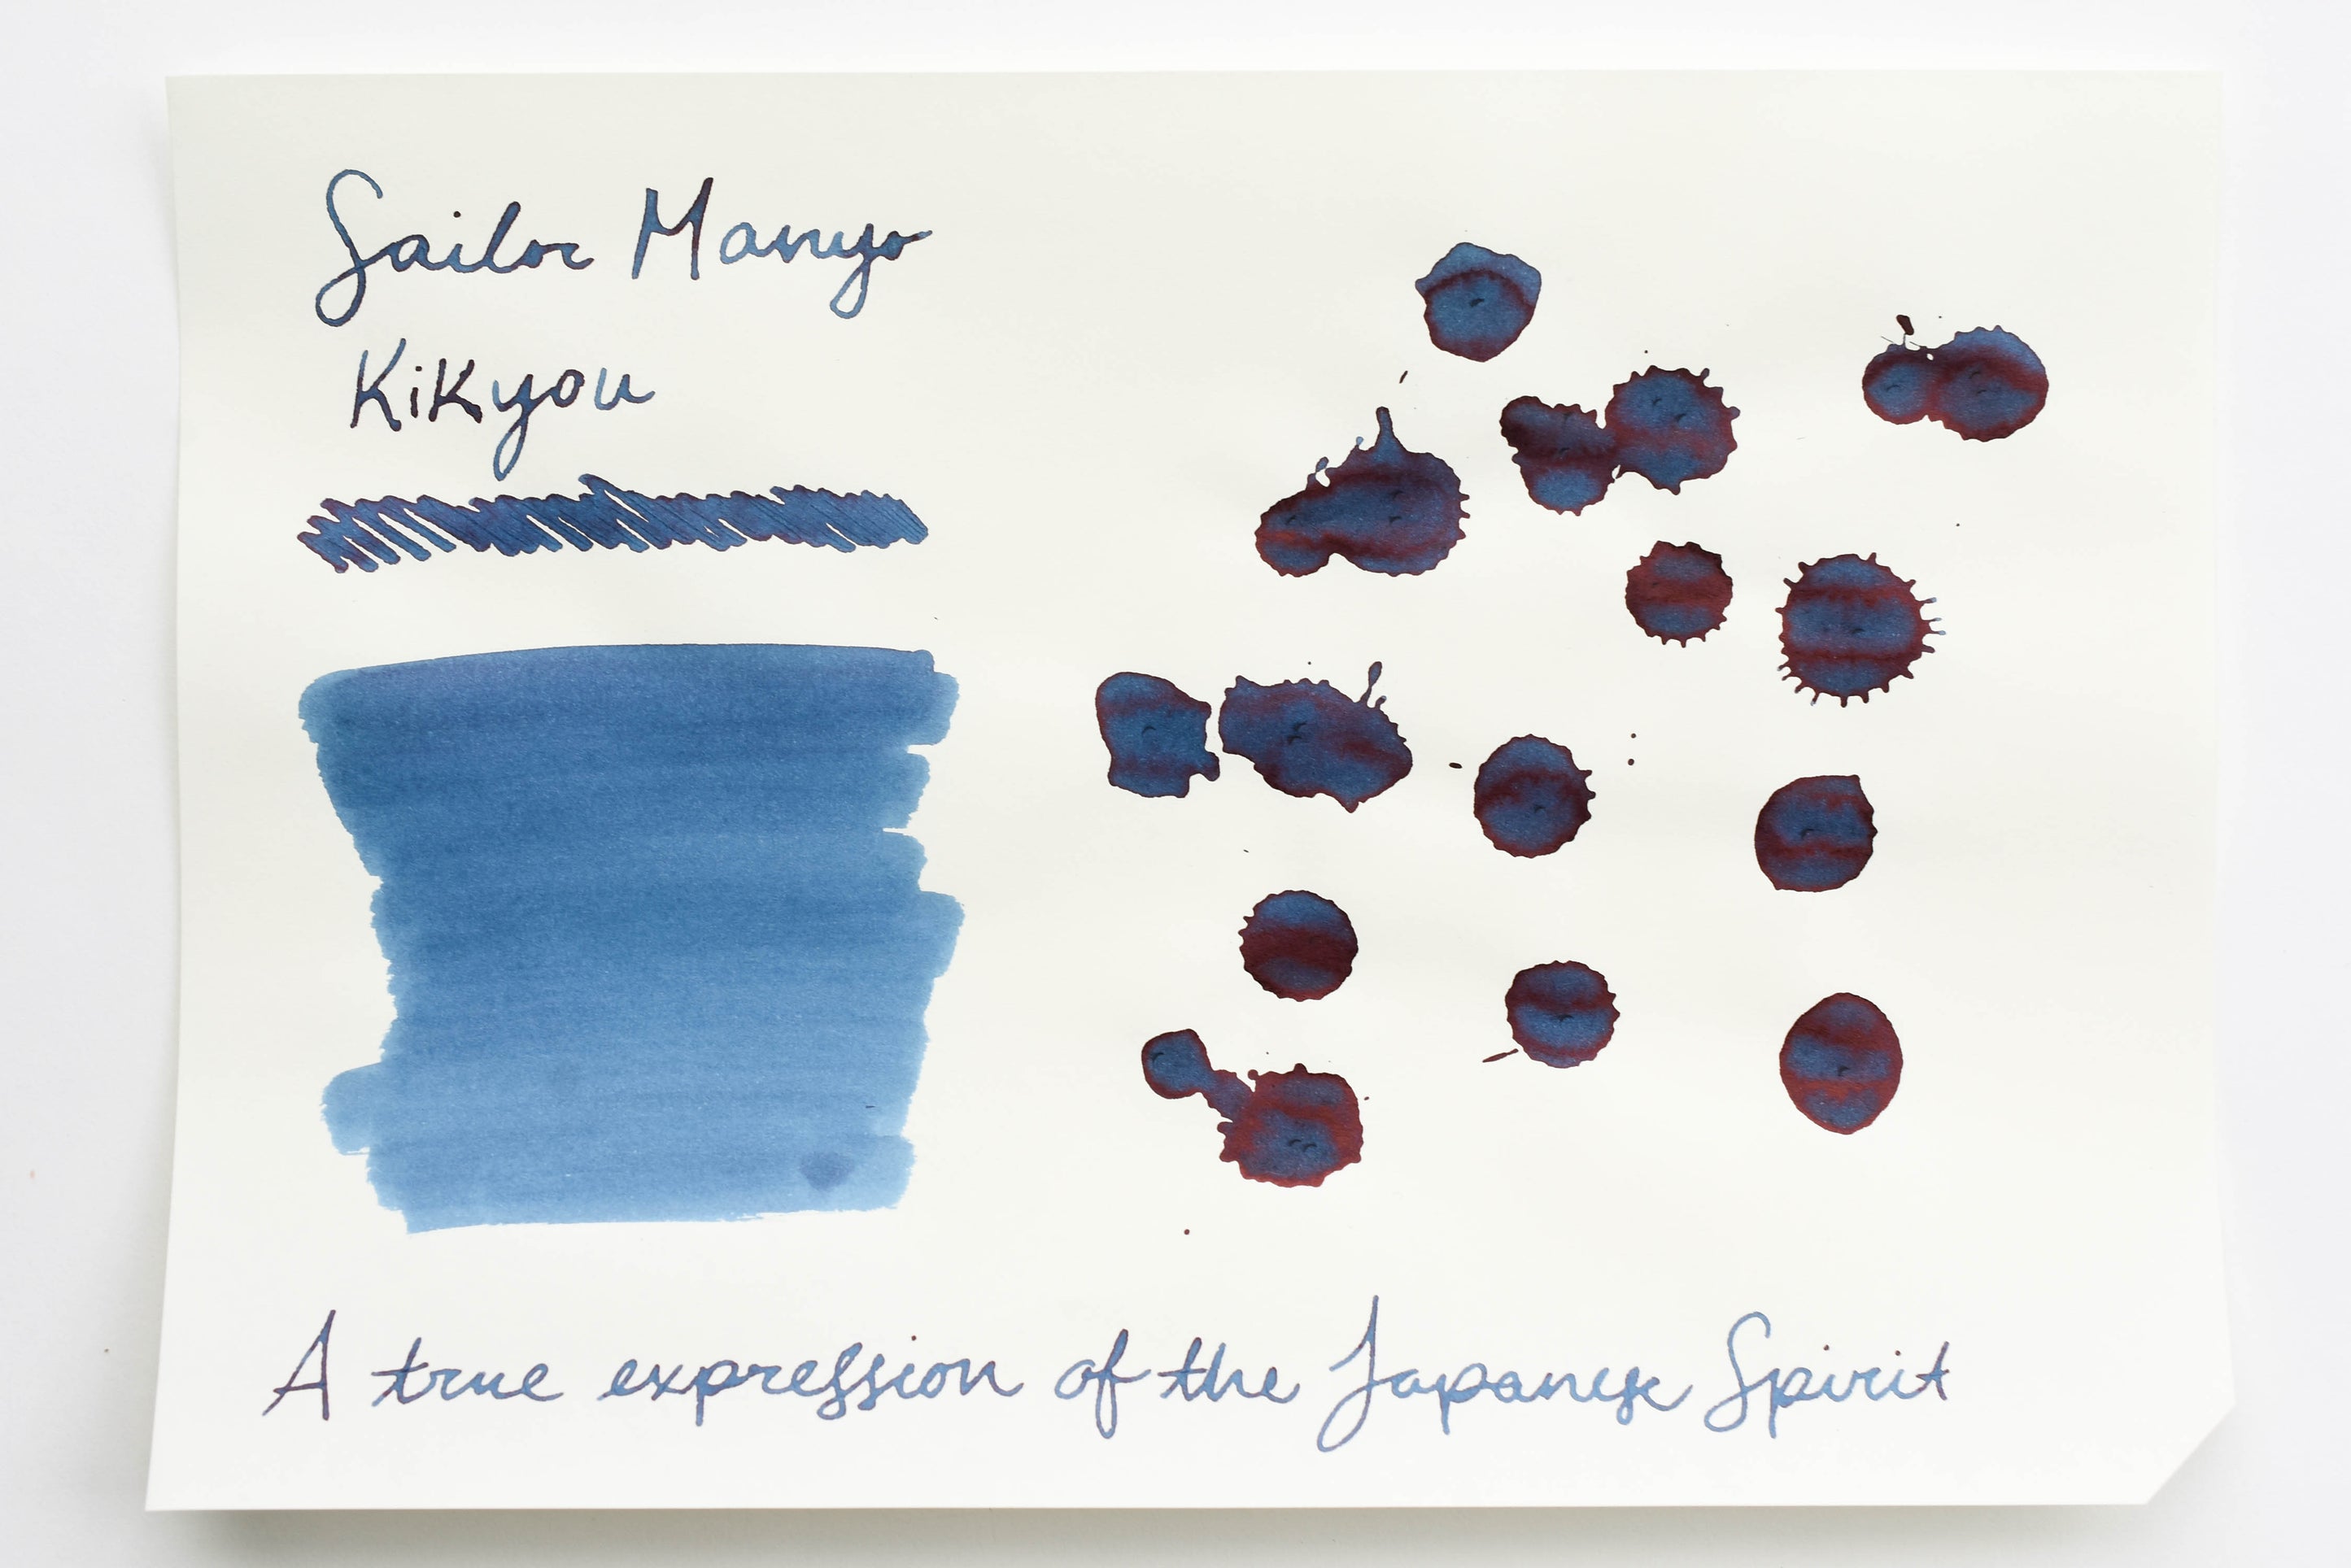 Sailor Manyo
Kikyou
A true expression of the Japanese Spirit